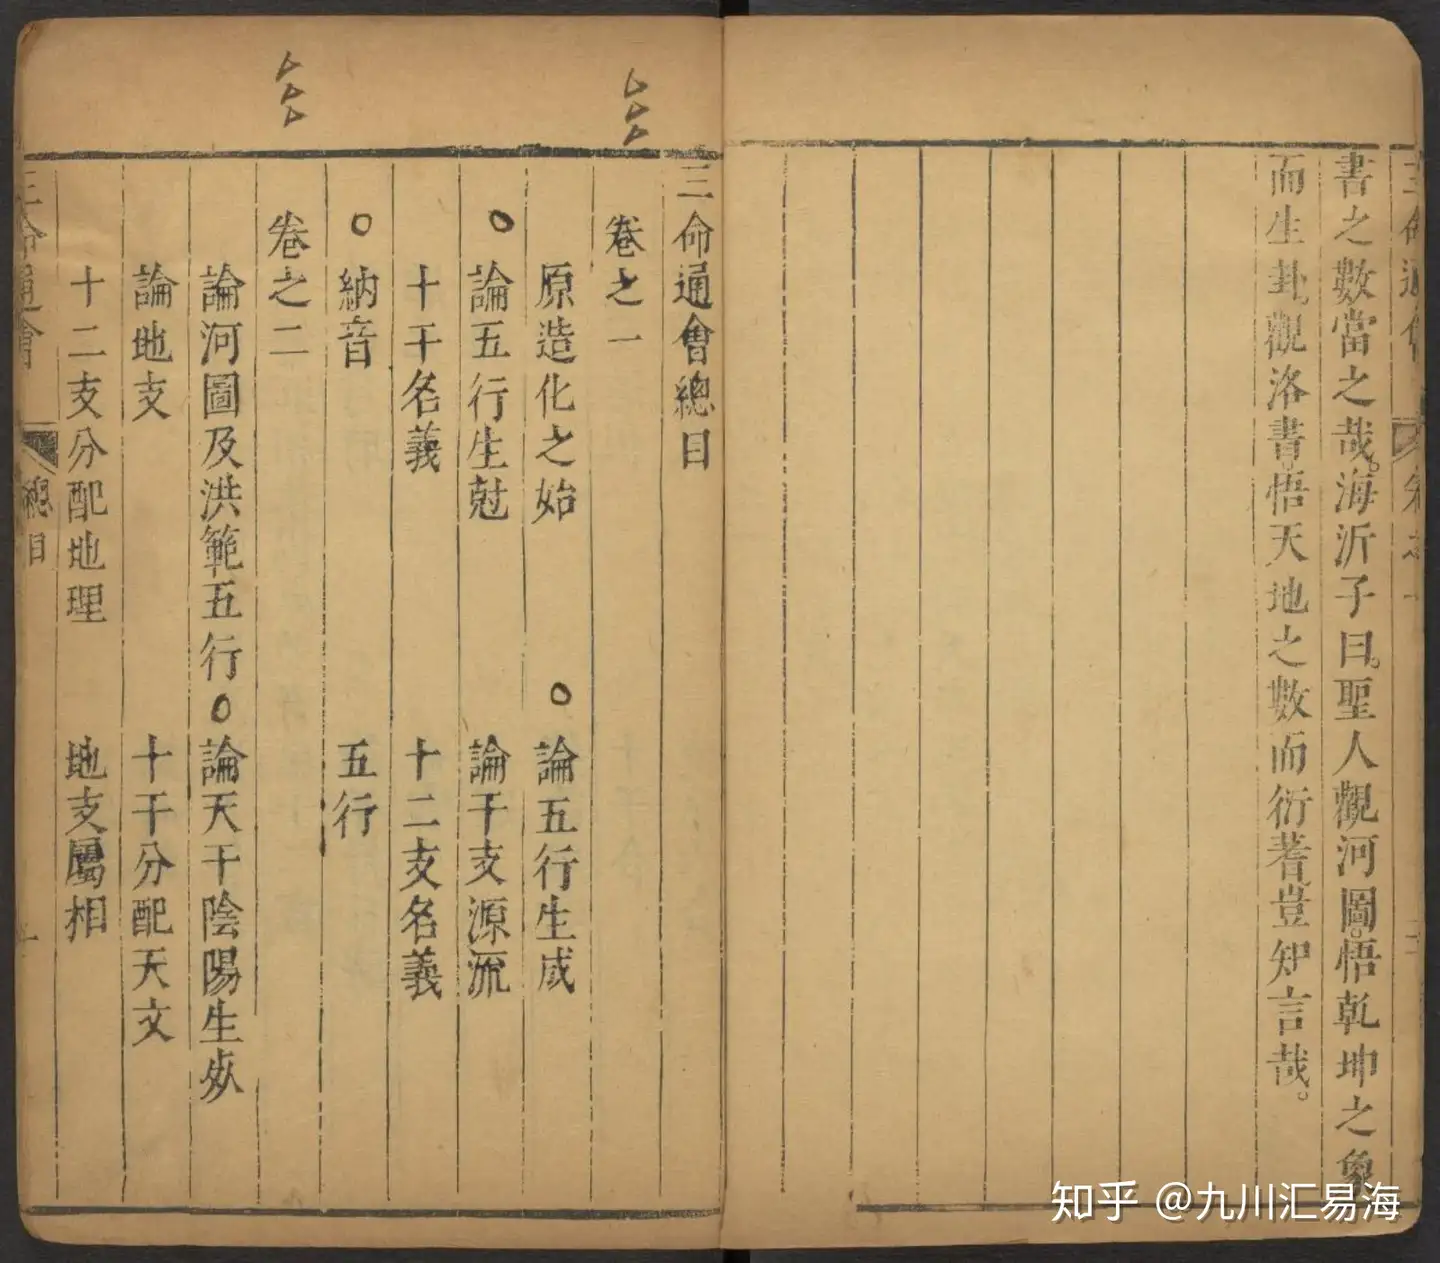 書之數當之哉。海沂子曰。聖人觀河圖。悟乾坤之象
而生卦。觀洛書。悟天地之數而衍蓍。豈知言哉。
三命通會總目
卷之一
原造化之始 ○論五行生成
○論五行生尅 論干支源流
十干名義 十二支名義
○納音 五行
卷之二
論河圖及洪範五行 ○論天干陰陽生死
論地支 十干分配天文
十二支分配地理 地支屬相
三命通會 總目
知乎 @九川汇易海